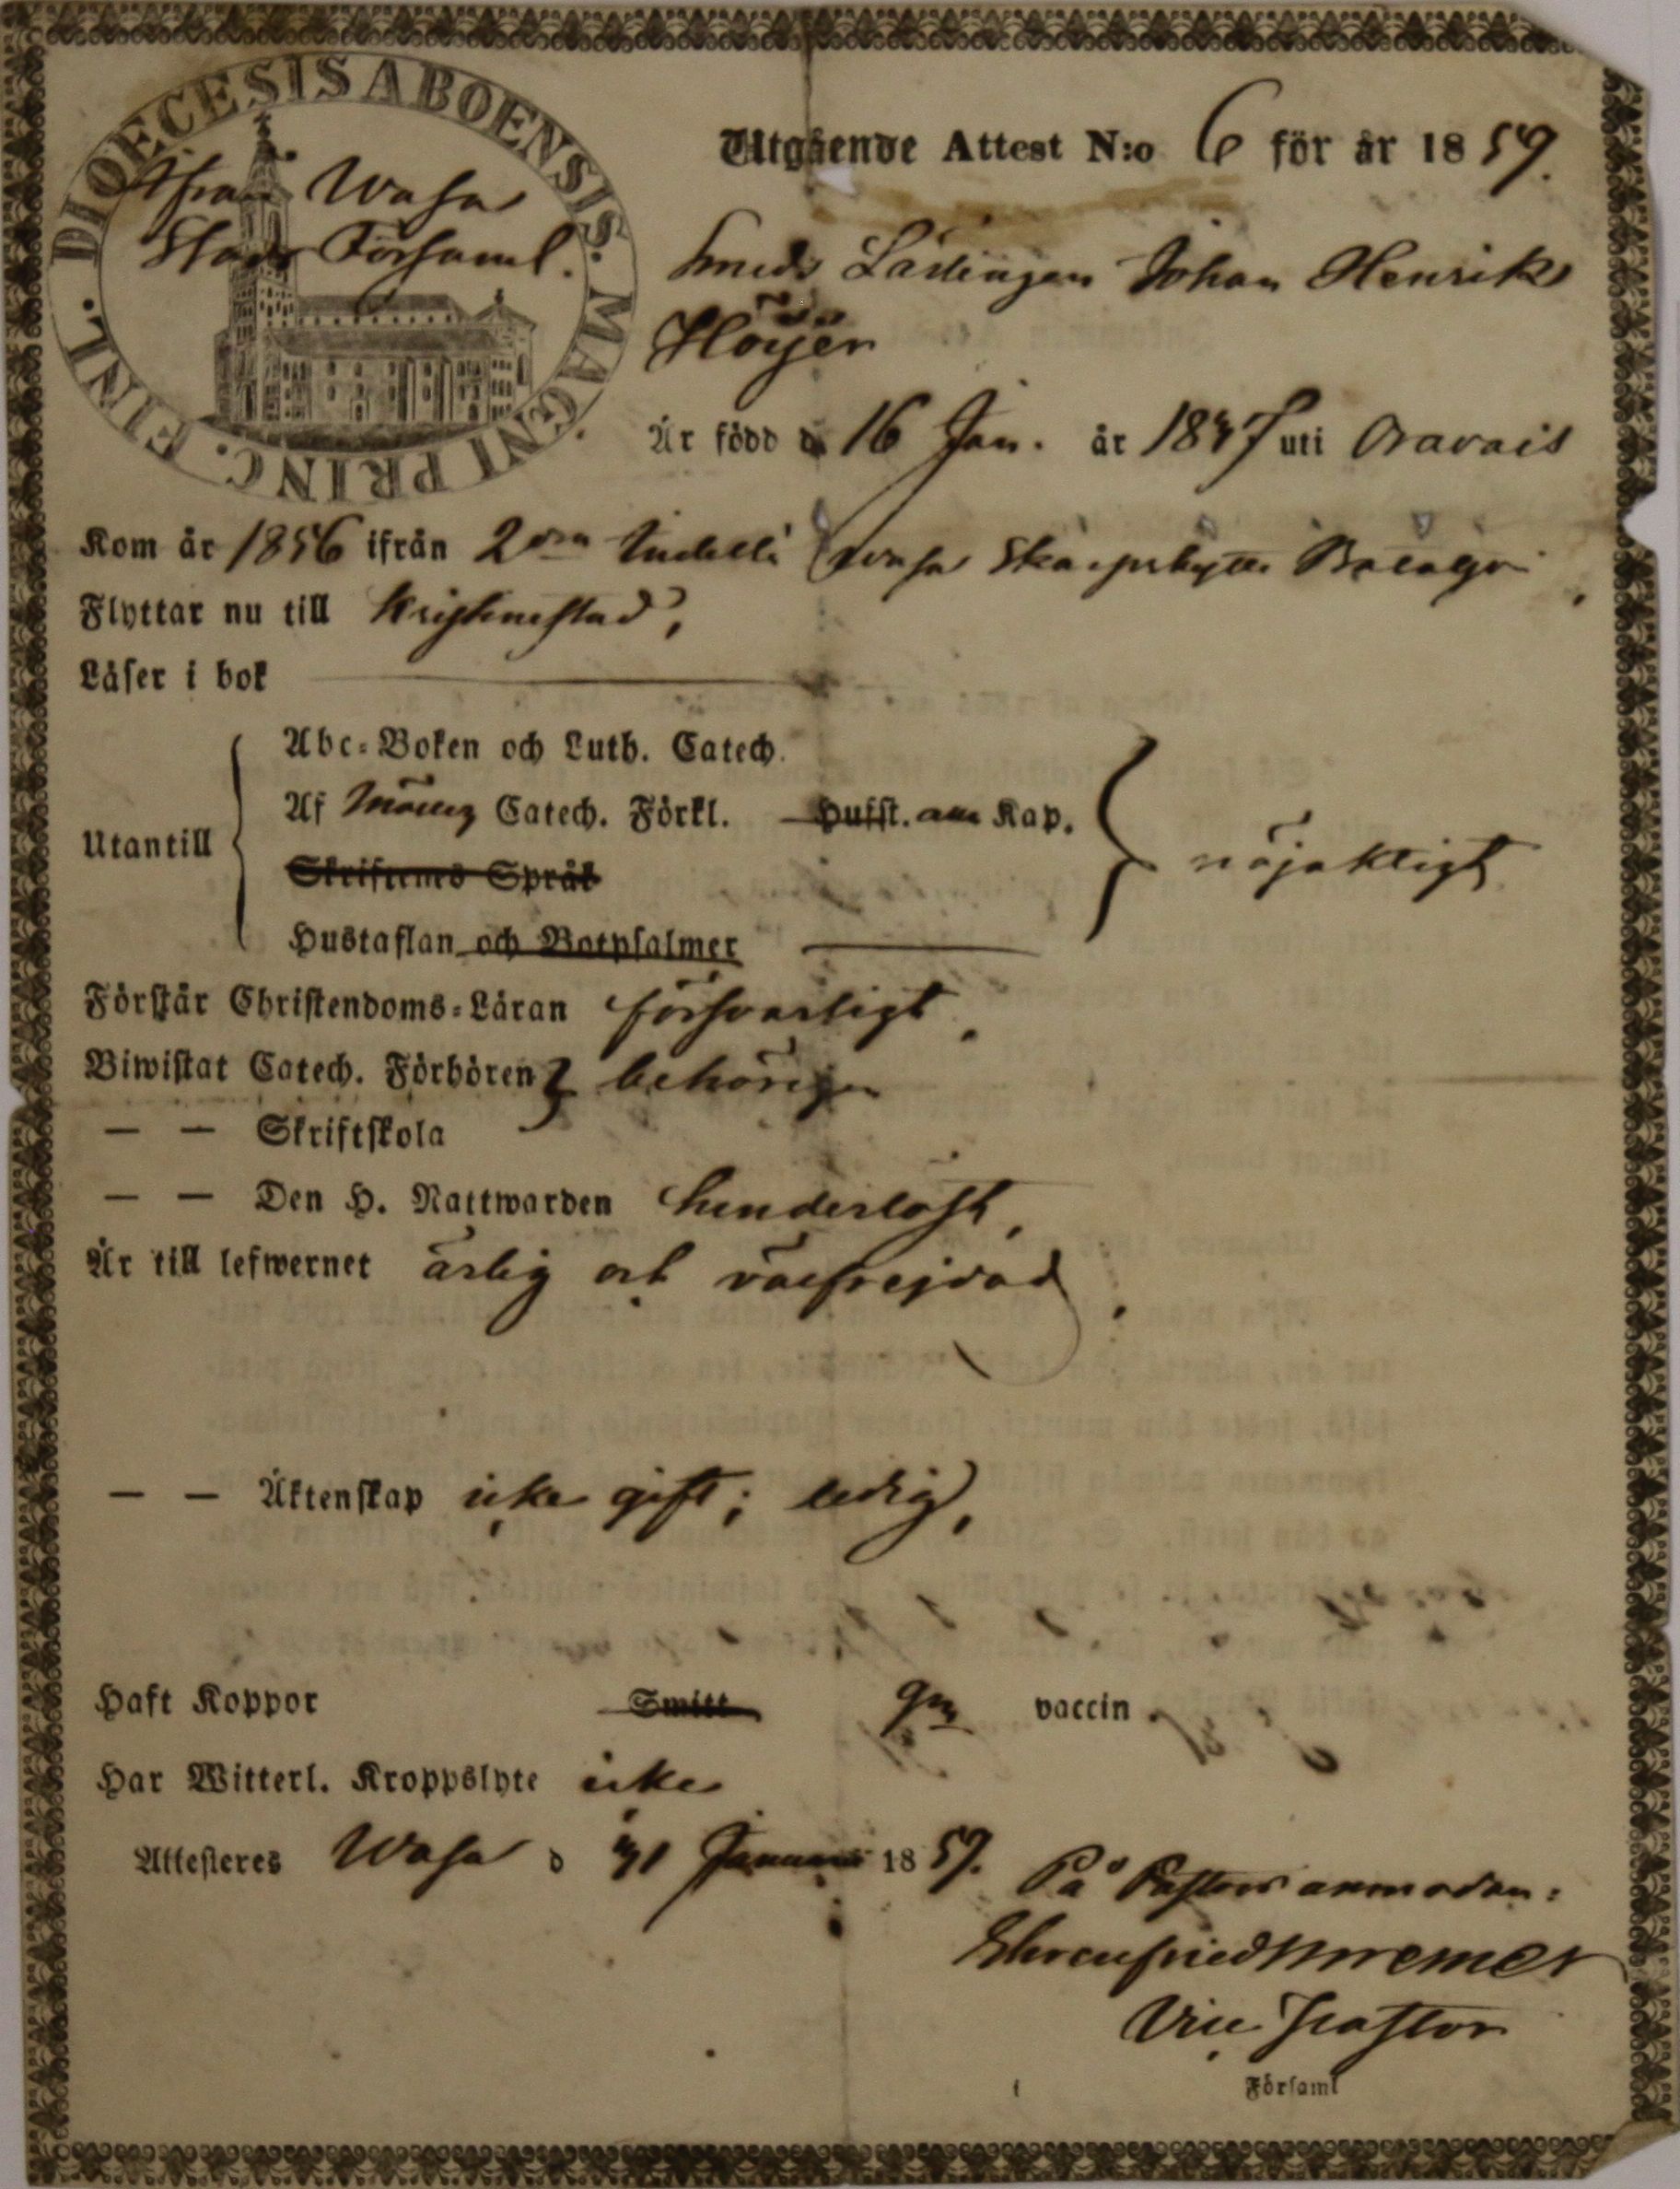 DIOECESIS ABOENSIS. MAGNI PRINC. FINL.
ifrån Wasa
Stads Församl.
Utgående Attest N:o 6 för år 1859.
Smeds Lärlingen Johan Henrik
Höijer
Är född d 16 Jan. år 1837 uti Oravais
Kom år 1856 ifrån 2dra Indelta Wasa Skarpskytte Bataljon.
Flyttar nu till Kristinestad,
Läser i bok
Utantill
Abc-Boken och Luth. Catech.
Af Möllers Catech. Förkl. Hufst. alla Kap.
Skriftens Språk
Hustaflan och Botpsalmer
nöjaktigt
Förstår Christendoms-Läran försvarligt.
Biwistat Catech. Förhören behörigen
— — Skriftskola
— — Den H. Nattwarden hinderlöst,
Är till lefwernet ärlig och välfrejdad,
— — Äktenskap icke gift; ledig,
Haft Koppor Smitt gm vaccin.
Har Witterl. Kroppslyte icke
Attesteras Wasa d 31 Januarii 1859.
På Pastors anmodan:
Ehrenfried
Vice Pastor
i Församl